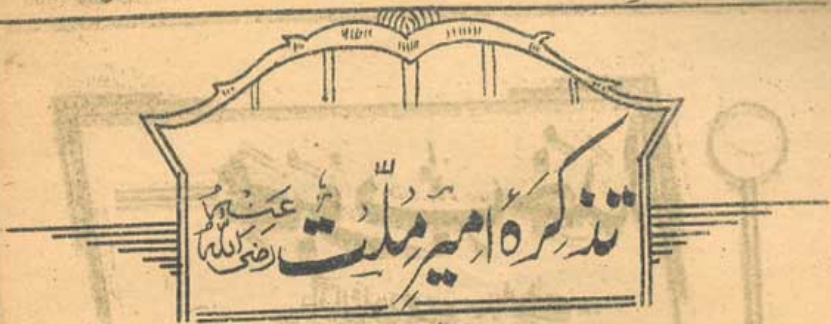 تذکرۂ امیر ملّت رضی اللہ عنہ